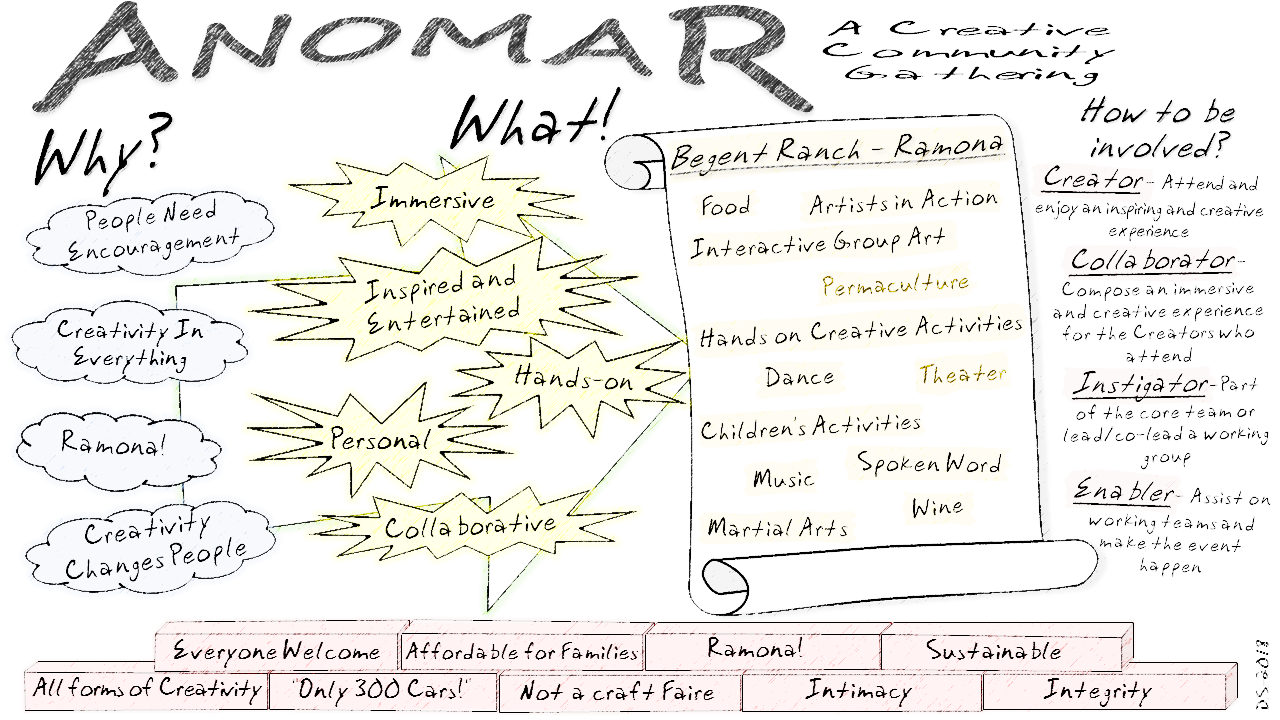 ANOMAR
A Creative
Community
Gathering
Why?
People Need
Encouragement
Creativity In
Everything
Ramona!
Creativity
Changes People
What!
Immersive
Inspired and
Entertained
Hands-on
Personal
Collaborative
Begent Ranch - Ramona
Food Artists in Action
Interactive Group Art
Permaculture
Hands on Creative Activities
Dance Theater
Children's Activities
Music Spoken Word
Wine
Martial Arts
How to be
involved?
Creator- Attend and
enjoy an inspiring and creative
experience
Collaborator-
Compose an immersive
and creative experience
for the Creators who
attend
Instigator-Part
of the core team or
lead/co-lead a working
group
Enabler- Assist on
working teams and
make the event
happen
Everyone Welcome Affordable for Families Ramona! Sustainable
All forms of Creativity "Only 300 Cars!" Not a craft Faire Intimacy Integrity